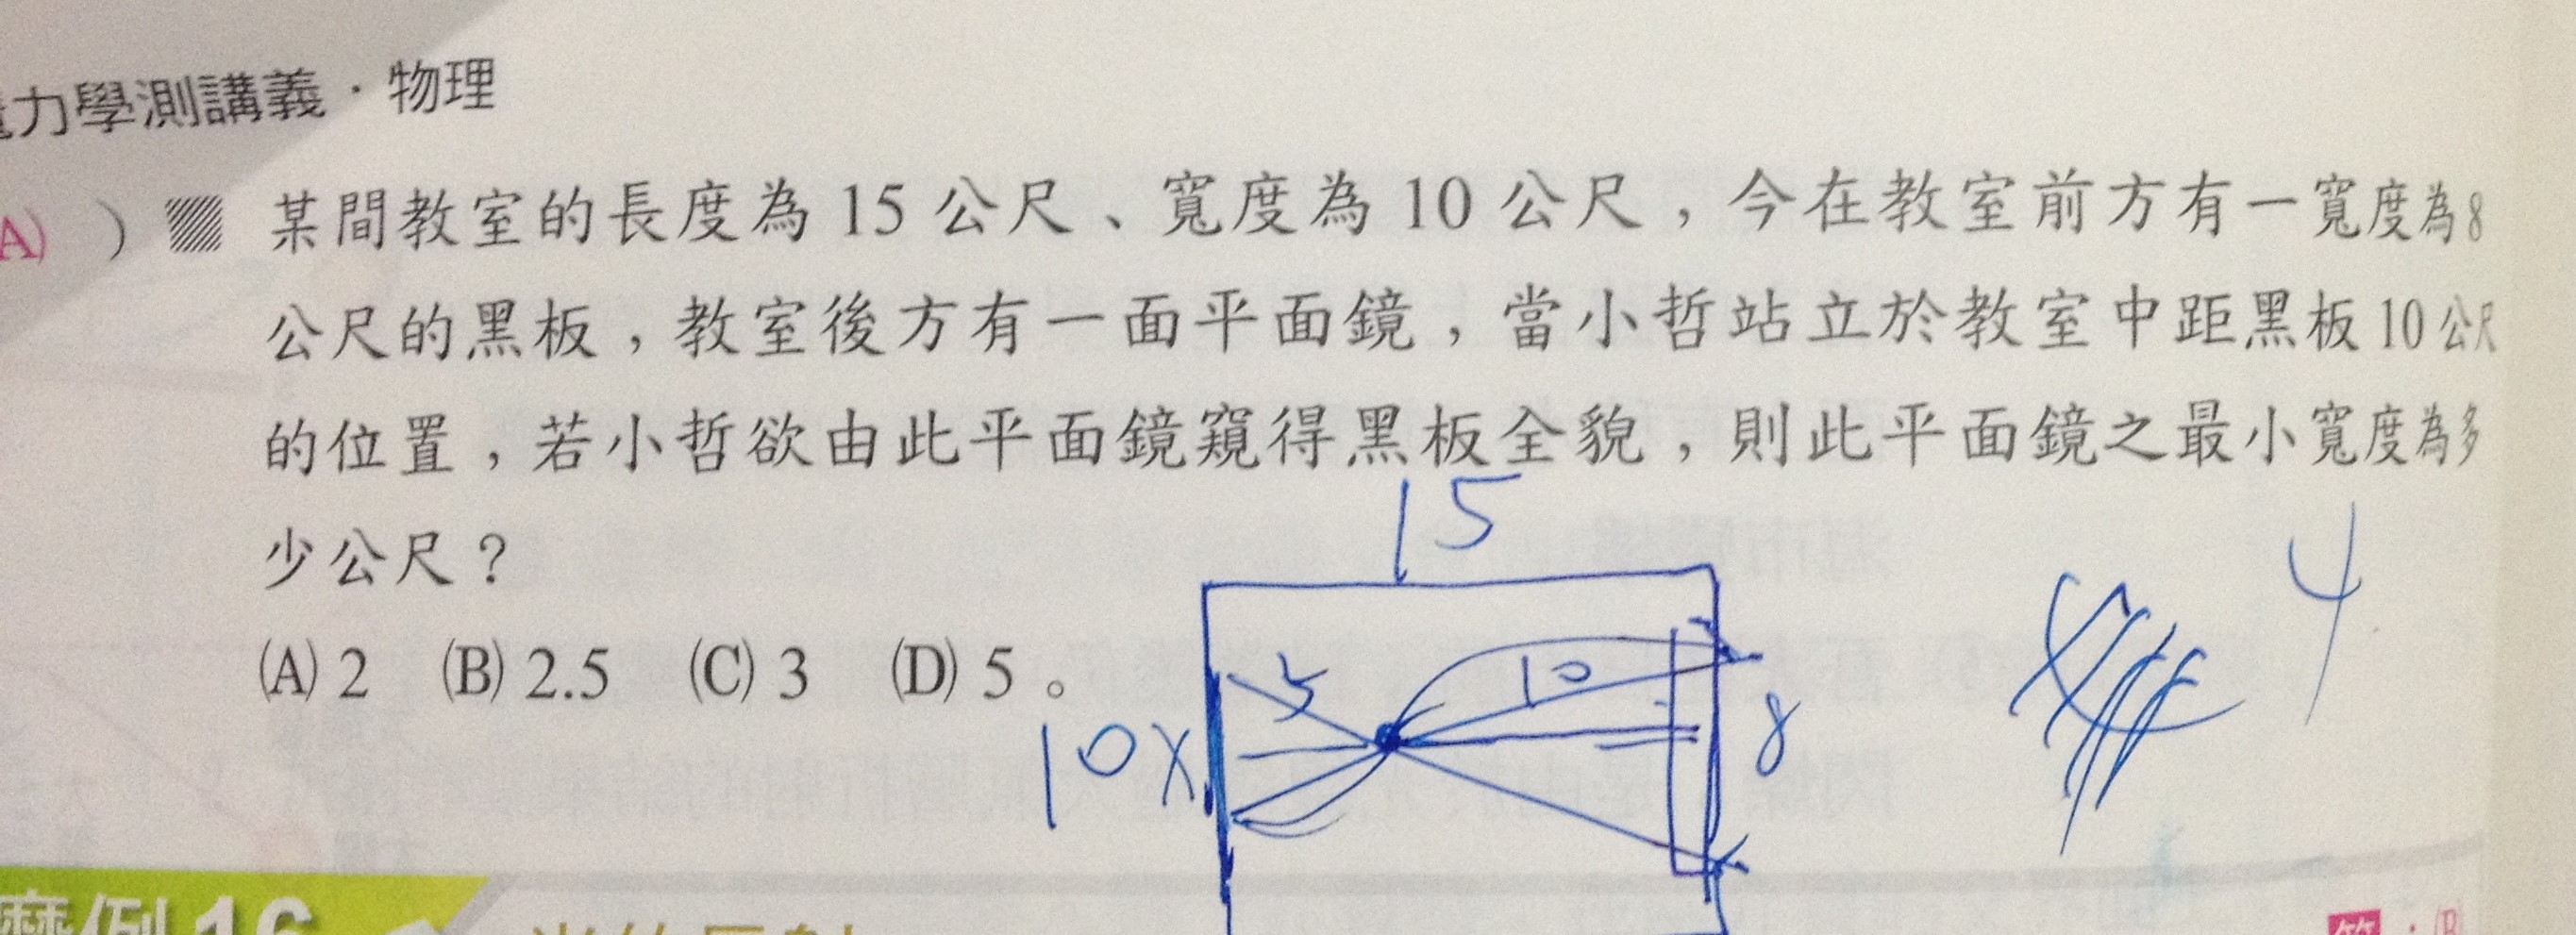 力學測講義·物理
A) ) 某間教室的長度為 15 公尺、寬度為 10 公尺，今在教室前方有一寬度為 8
公尺的黑板，教室後方有一面平面鏡，當小哲站立於教室中距黑板 10 公尺
的位置，若小哲欲由此平面鏡窺得黑板全貌，則此平面鏡之最小寬度為多
少公尺？
(A) 2 (B) 2.5 (C) 3 (D) 5 。
15
4
5
10
10
X
8
例 16